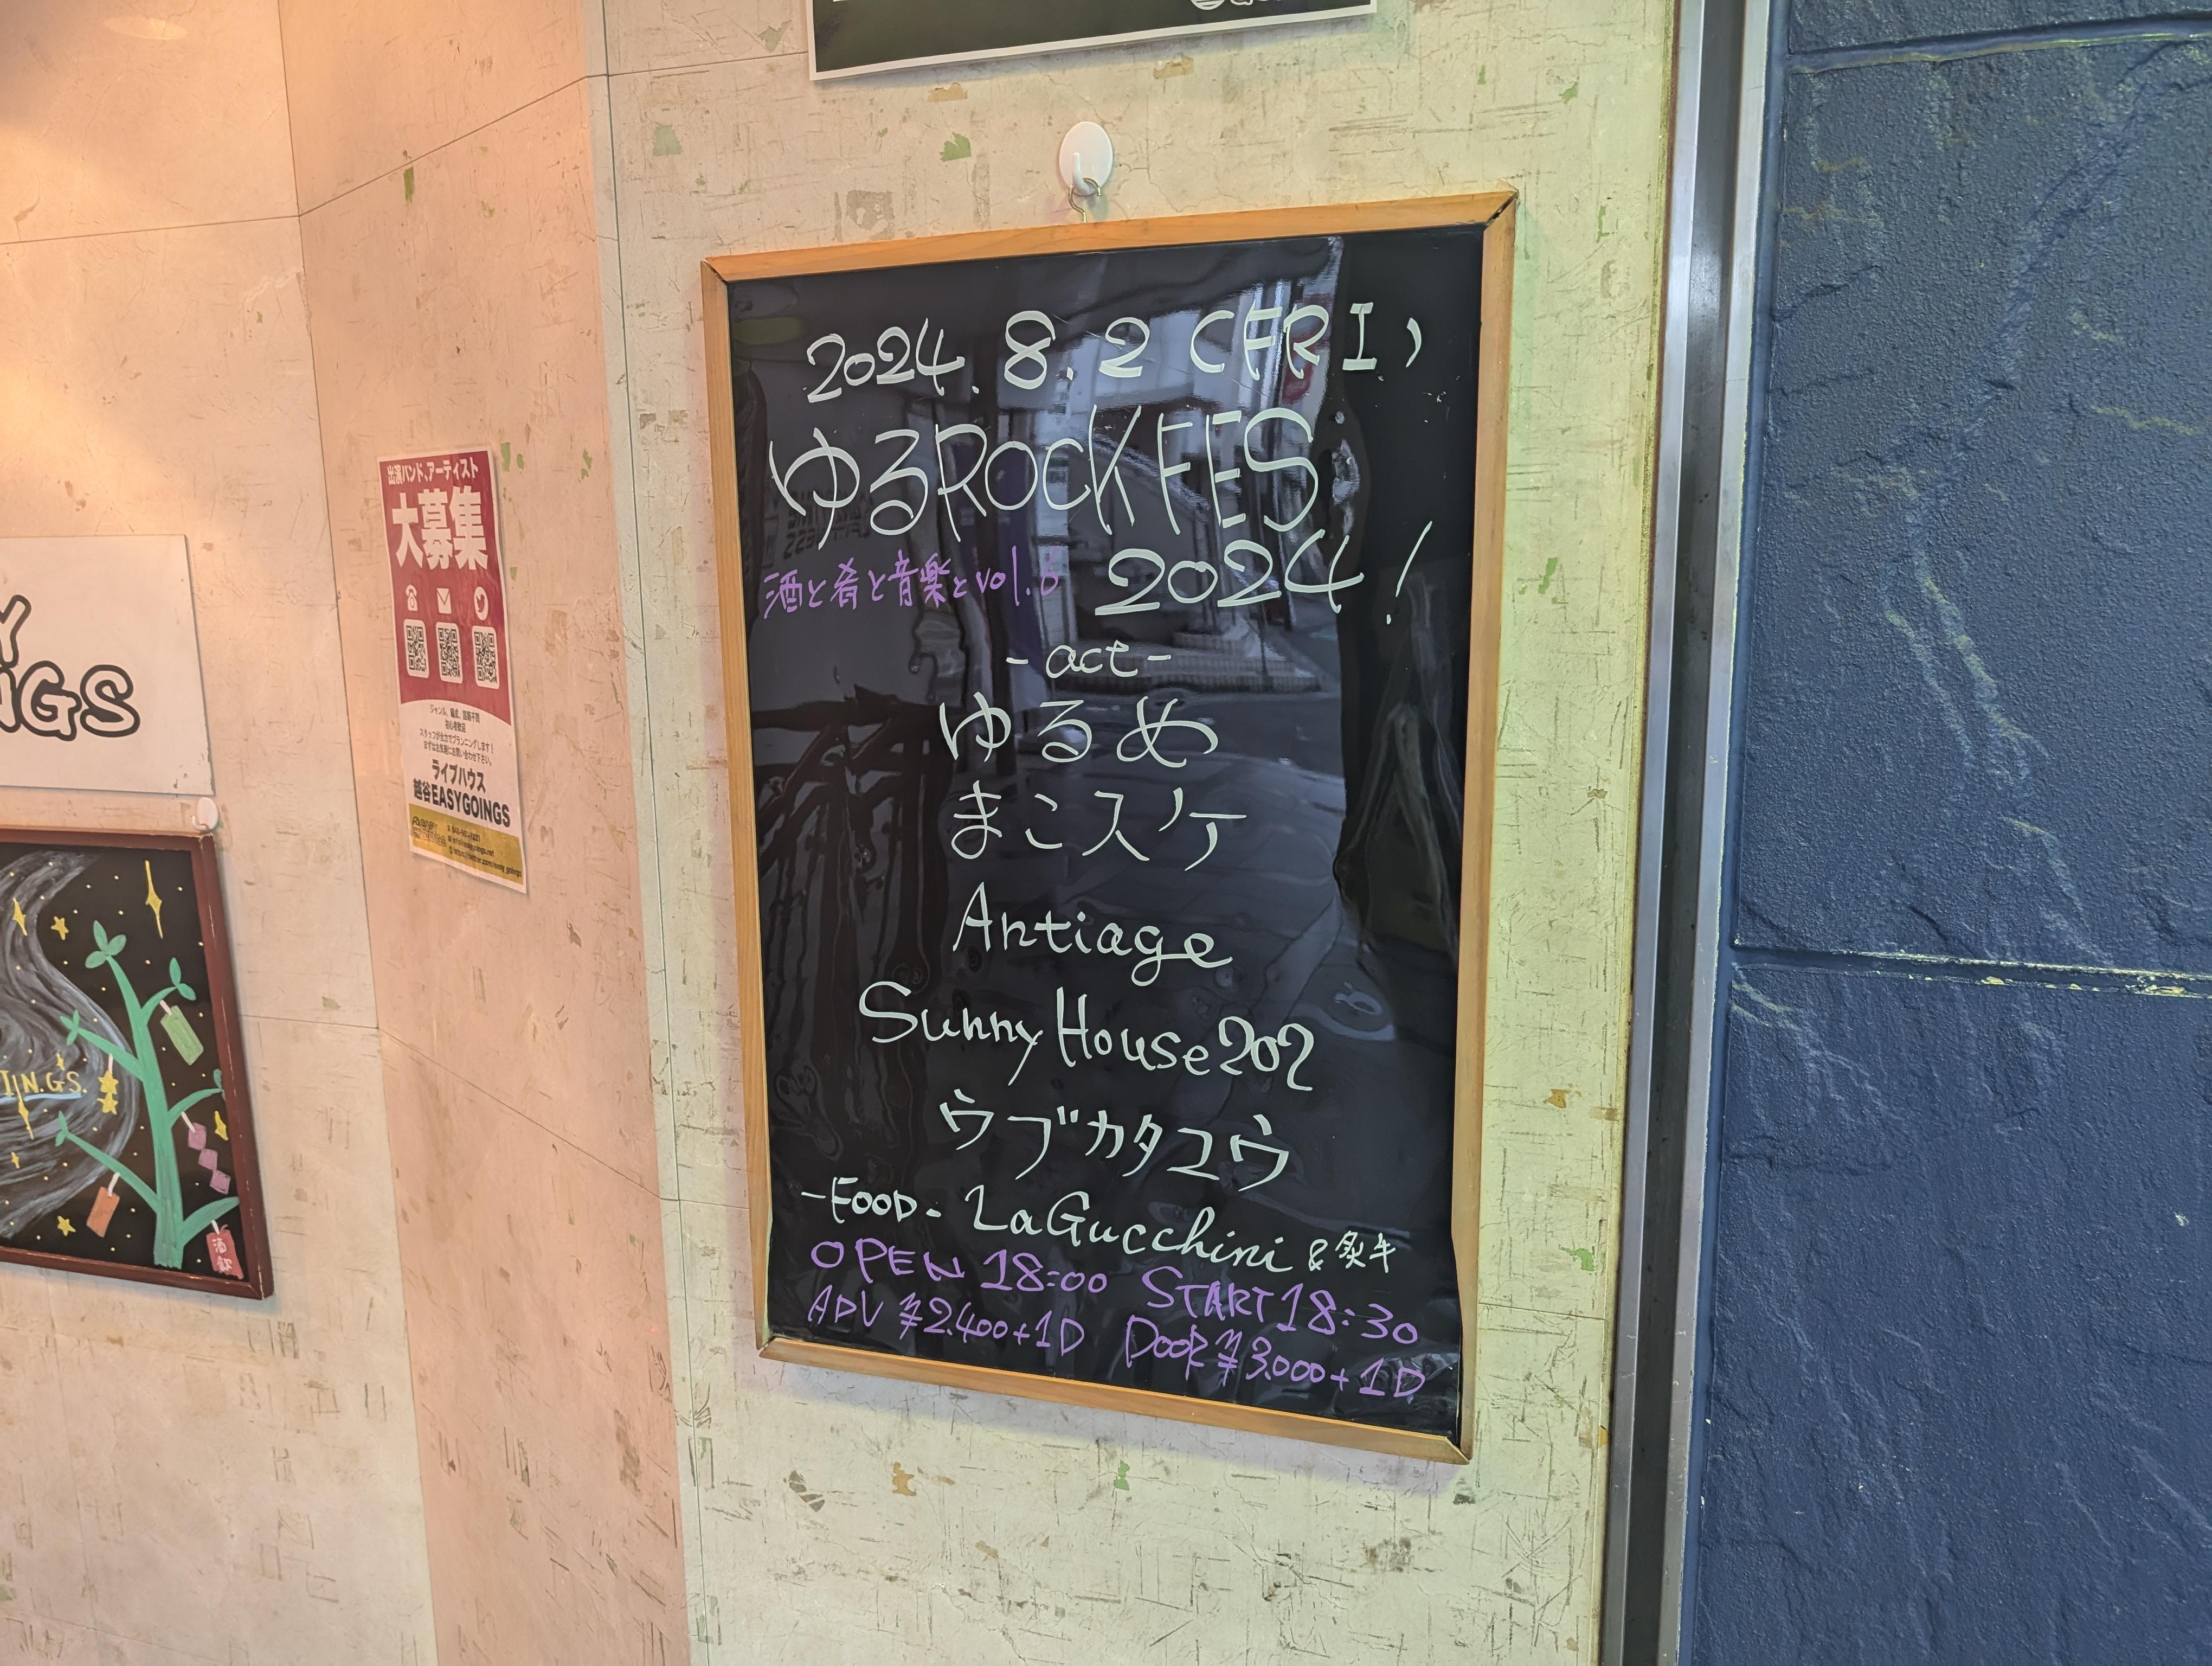 2024. 8. 2 (FRI)
ゆるROCK FES
2024!
酒と肴と音楽と vol.6
-act-
ゆるめ
まこスケ
Antiage
Sunny House 202
ウブカタユウ
-FOOD- LaGucchini & 炙キ
OPEN 18:00 START 18:30
ADV ¥2.400+1D DOOR ¥3.000+1D
出演バンド、アーティスト
大募集
ジャンル、編成、国籍不問
初心者歓迎
スタッフが全力でプランニングします!
まずはお気軽にお問い合わせ下さい。
ライブハウス
越谷EASYGOINGS
Y
INGS
I.N.G.S.